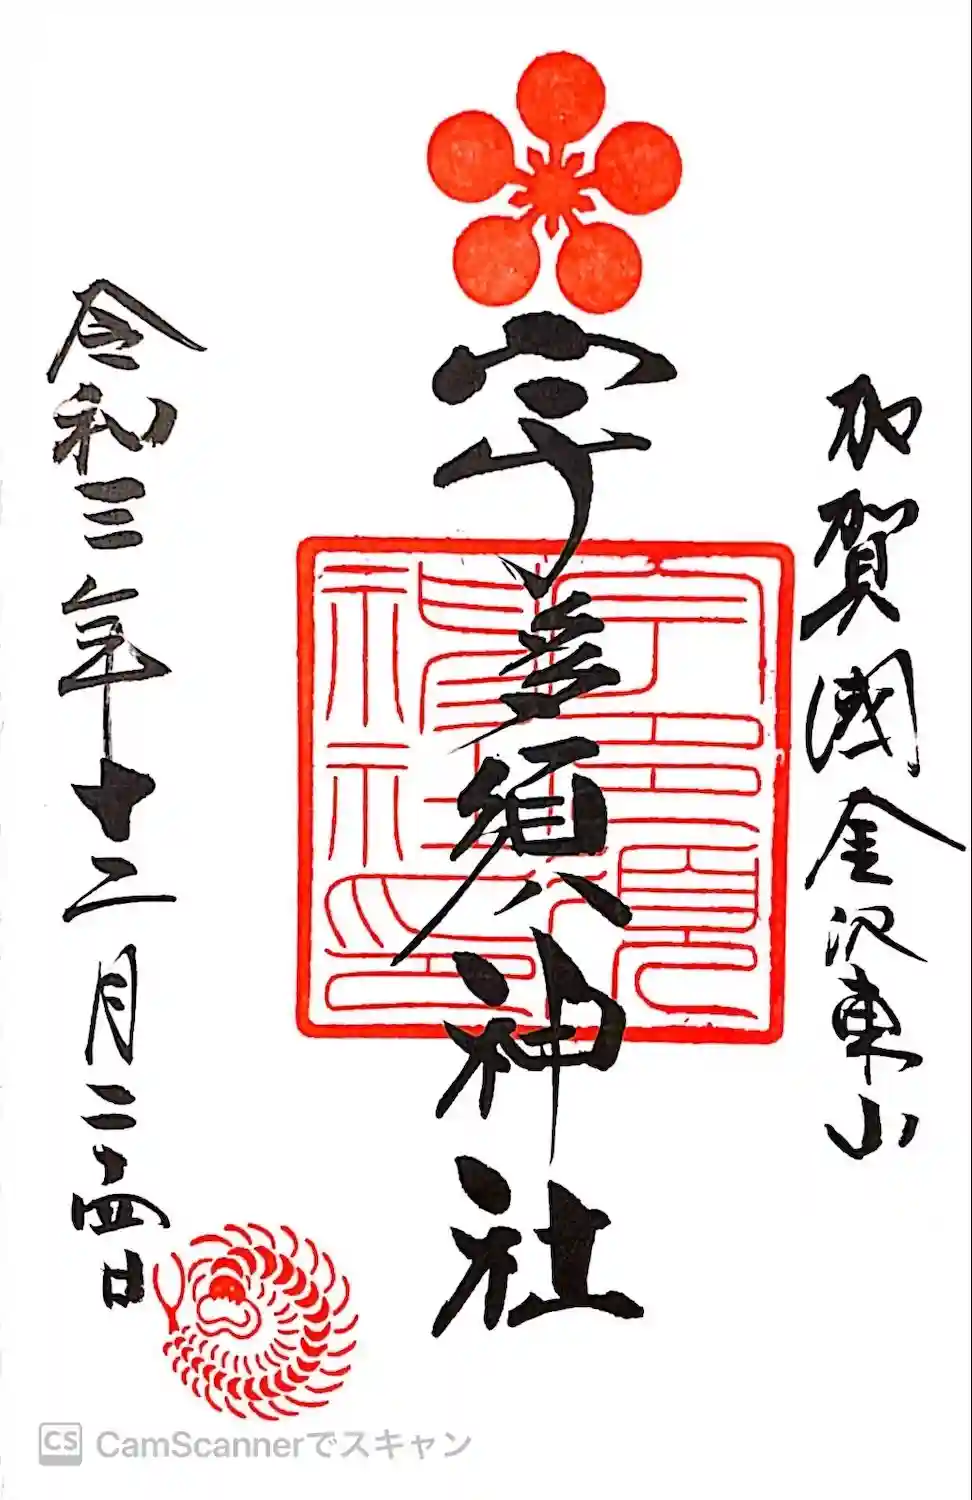 加賀國金沢東山
宇多須神社
宇多須神社印
令和三年十二月二十四日
CS CamScannerでスキャン